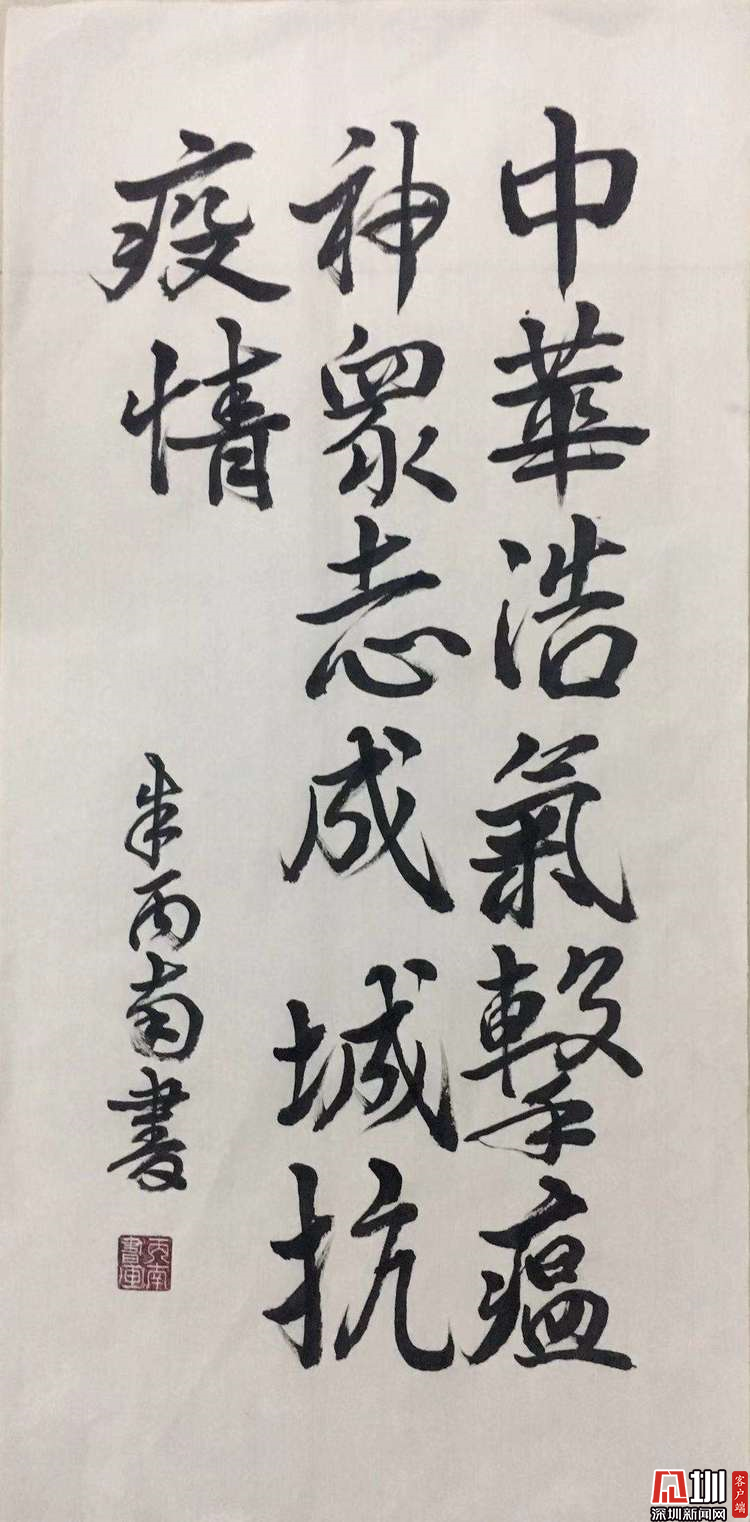 中華浩氣擊瘟
神眾志成城抗
疫情
朱丙南書
丙南
書画
圳
客户端
深圳新闻网